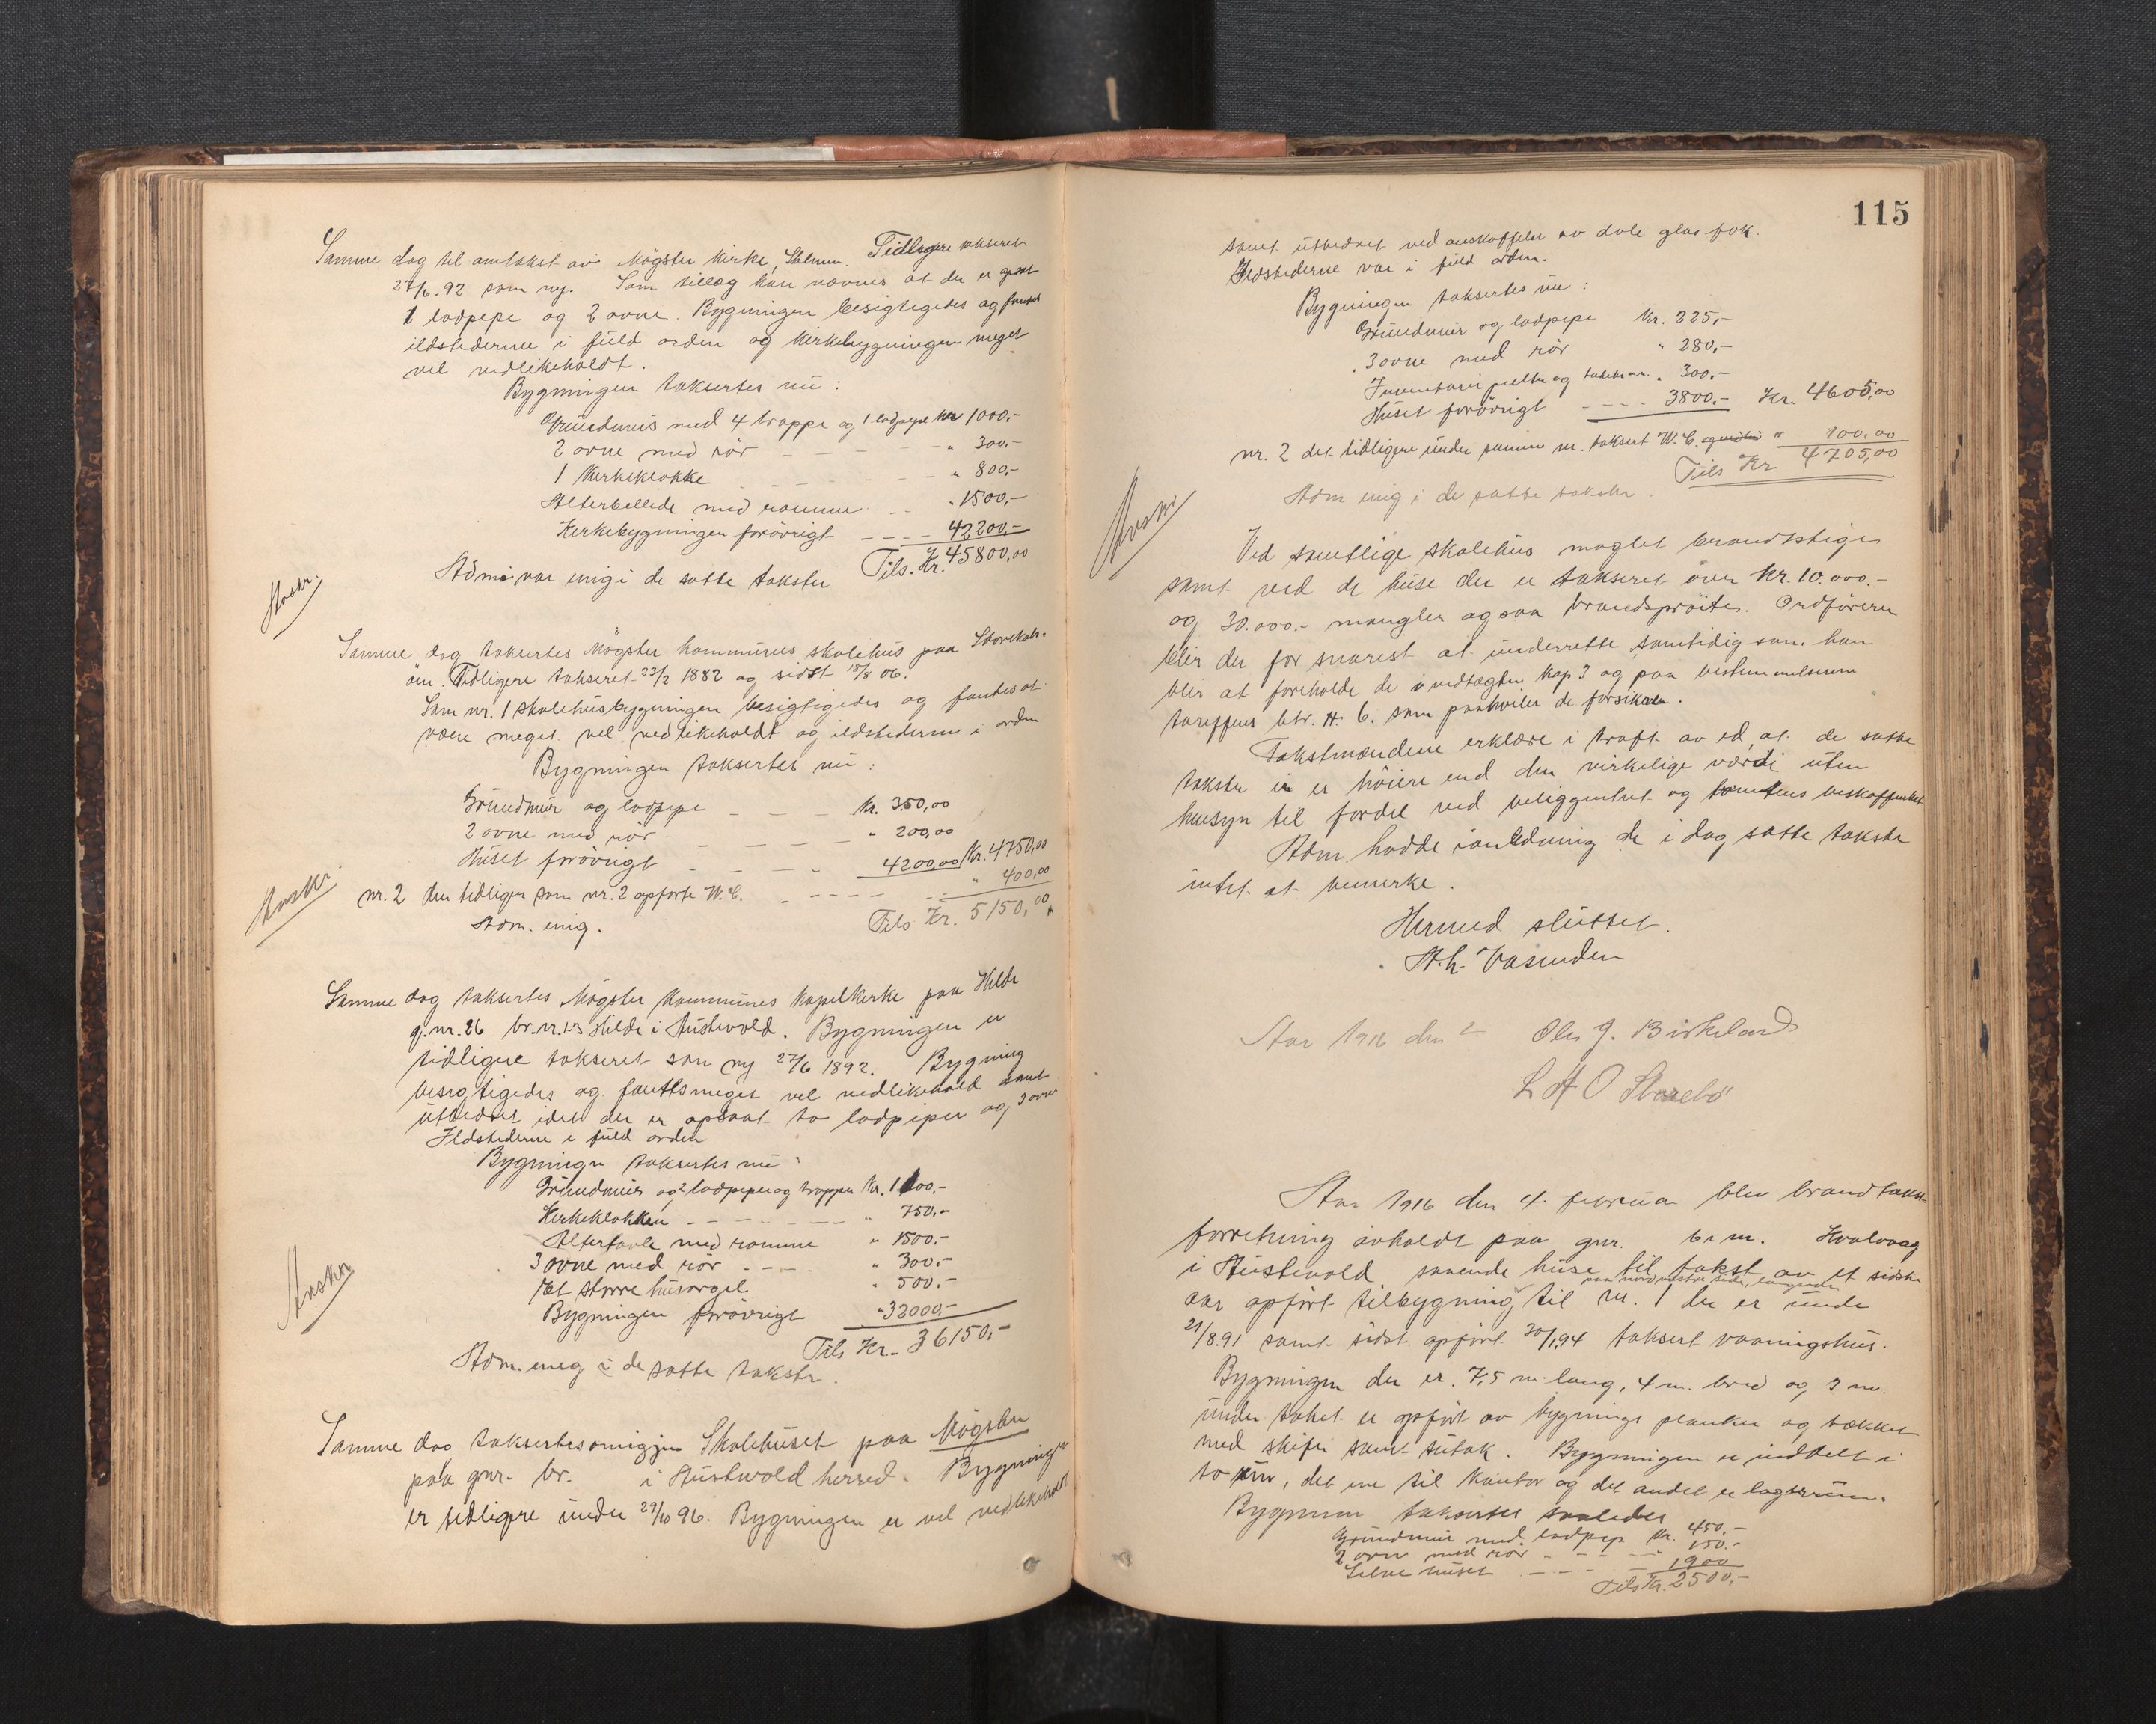 Samme dag til omtakst av Møgster kirke, Stolmen. Tidligere takseret
27/6.92 som ny. Som tillæg kan nævnes at der er
1 ladpipe og 2 ovne. Bygningen besigtigedes og fandtes
ildstederne i fuld orden og kirkebygningen meget
vel vedlikeholdt.
Bygningen taksertes nu:
Grundmur med 4 trapper og 1 ladpipe Kr 1000,-
2 ovne med rör - - - - - " 300,-
1 Kirkeklokke - - - - - " 800,-
Alterbillede med ramme - - " 1500,-
Kirkebygningen forövrigt - - - - 42200,-
Tils. Kr. 45800,00
Adm. var enig i de satte takster
Avskr.
Samme dag taksertes Møgster kommunes skolehus paa Storekals-
øen. Tidligere takseret 23/2 1882 og sidst 18/8 06.
Som nr. 1 skolehusbygningen besigtigedes og fandtes at
være meget vel vedlikeholdt og ildstederne i orden
Bygningen taksertes nu:
Grundmur og ladpipe - - - Kr. 350,00
2 ovne med rör - - - - " 200,00
Huset forövrigt - - - - 4200,00 Kr. 4750,00
nr. 2 den tidligere som nr. 2 opførte W.C. - - - - " 400,00
Tils Kr. 5150,00
Adm. enig.
Avskr.
Samme dag taksertes Møgster Kommunes Kapelkirke paa Hilde
g.nr. 26 br.nr. Hilde i Austevold. Bygningen er
tidligere takseret som ny 27/6 1892. Bygning
besigtigedes og fandtes meget vel vedlikehold samt
utbedret idet der er opsat to ladpiper og 3 ovne
Ildstederne i fuld orden
Bygningen taksertes nu:
Grundmur og 2 ladpiper og trapper Kr. 1100,-
Kirkeklokken - - - - - " 750,-
Altertavle med ramme " 1500,-
3 ovne med rör - - - " 300,-
Et större husorgel " 500,-
Bygningen forövrigt " 32000,-
Tils Kr. 36150,-
Adm. enig i de satte takster.
Avskr
Samme dag taksertes omigjen Skolehuset paa Møgster
paa gnr. br. i Austevold herred. Bygningen
er tidligere under 29/10 96. Bygningen er vel vedlikeholdt
115
samt utbedret ved anskaffelse av dob. glas
Ildstederne var i fuld orden.
Bygningen taksertes nu:
Grundmur og ladpipe Kr. 225,-
3 ovne med rör " 280,-
Inventarie pulter og " 300,-
Huset forövrigt - - - - 3800,- Kr. 4605,00
nr. 2 det tidligere under samme nr. taksert W.C. " 100,00
Tils Kr 4705,00
Adm enig i de satte takster.
Avskr
Ved samtlige skolehus manglet brandstiger
samt ved de huse der er takseret over Kr. 10.000.-
og 30.000.- mangler ogsaa brandsprøiter. Ordføreren
blir der for snarest at underrette samtidig som han
blir at foreholde de i vedtægten Kap 3 og paa bestemmelserne
tariffens litr. H. 6. som paahviler de forsikrede.
Takstmændene erklære i kraft av ed, at de satte
takster ei er høiere end den virkelige værdi uten
hensyn til fordel ved beliggenhet og tomtens beskaffenhet
Adm. hadde i anledning de i dag satte takster
intet at bemerke.
Hermed sluttet.
Aar 1916 den 2 Ole J. Birkeland
L H O Storebø
Aar 1916 den 4. februar blev brandtakst-
forretning avholdt paa gnr. br. nr. Hvalvaag
i Austevold, saaende huse til takst av et sidste
paa nordvestre side,
aar opført tilbygning til nr. 1 der er under
21/8.91 samt sidst opført 30/1.94 taksert vaaningshus.
Bygningen der er. 7,5 m. lang, 4 m. bred og 3 m.
under taket er opført av bygnings planker og tækket
med skifer samt sutak. Bygningen er inddelt i
to rum, det ene til Kontor og det andet er lagerrum.
Bygningen taksertes saaledes
Grundmur med ladpipe Kr. 450,-
2 ovne med rör - - - - 150,-
Selve huset - - - - 1900
Tils Kr. 2500,-